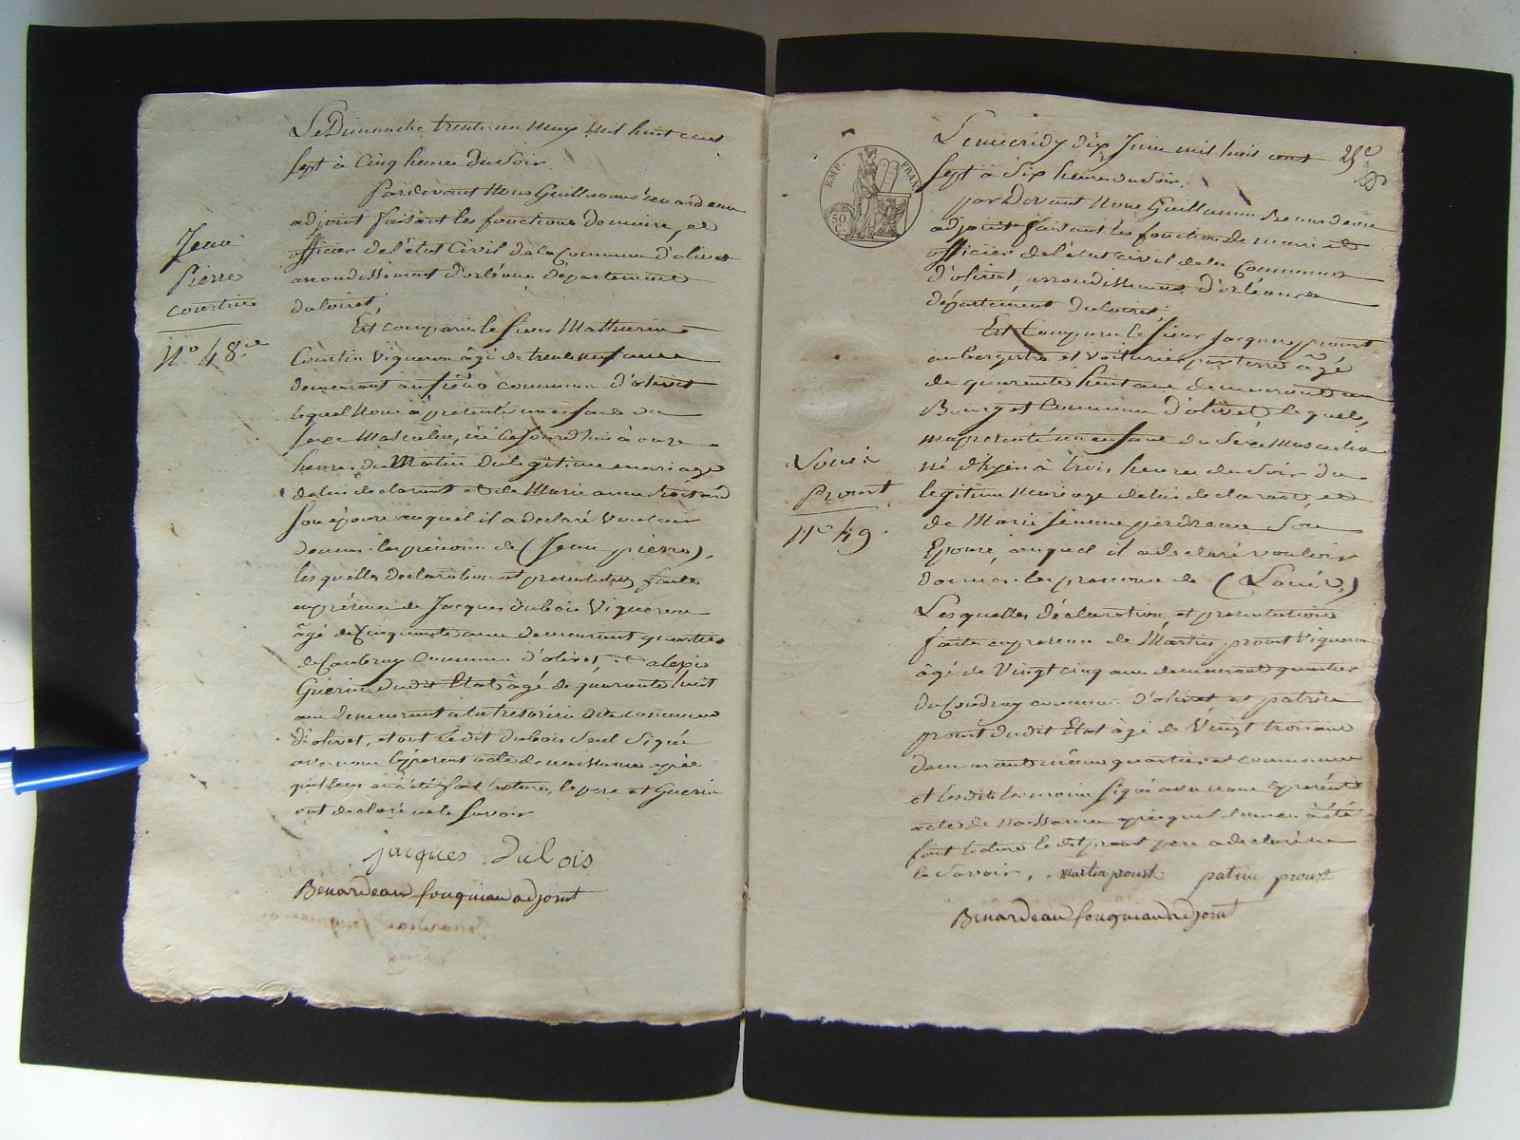 Le Dimanche trente un may mil huit cent
sept à Cinq heures du Soir
Pardevant Nous Guillaume Benardeau
adjoint faisant les fonctions de maire, et
officier de l'état Civil de la Commune d'olivet
arrondissement d'orléans département
du loiret
Est comparu le sieur Mathurin
Courtin Vigneron âgé de trente neuf ans
demeurant au commune d'olivet
lequel Nous à présenté un enfant du
Sexe Masculin, né ce jourd'hui à onze
heures du Matin du légitime mariage
de lui déclarant et de Marie anne
Son épouse auquel il a déclaré Vouloir
donner les prénoms de (Jean pierre),
les quelles déclaration et présentation faites
en présence de Jacques Dubois Vigneron
âgé de Cinquante ans demeurant quartier
de Caubray Commune d'olivet et alexis
Guerin dudit Etat âgé de quarante huit
ans demeurant à la trésorerie dite commune
d'olivet, et ont ledit dubois Seul Signé
avec nous le présent acte de naissance après
qu'il leur en a été fait lecture, le père et Guerin
ont déclaré ne le Savoir
jacques Dubois
Benardeau fouqueau adjoint
Jean
Pierre
courtin
N.º 48.
25e
Le mercredy dix Juin mil huit cent
sept à Six heures du Soir,
par Devant Nous Guillaume Benardeau
adjoint faisant les fonctions de maire et
officier de l'état civil de la Commune
d'olivet, arrondissement d'orléans
département du loiret
EMP. FRAN.
50
Est Comparu le sieur Jacques proust
aubergiste et voiturier par terre âgé
de quarante huit ans demeurant au
Bourg et Commune d'olivet, lequel,
m'a présenté un enfant du Sexe Masculin
né d'hyer à trois heures du Soir du
légitime Mariage de lui déclarant, et
de Marie perdreau Son
Epouse, auquel il a déclaré vouloir
donner les prénoms de (Louis)
Les quelles déclaration, et présentation
faite en présence de Martin proust Vigneron
âgé de Vingt cinq ans demeurant quartier
du Coudray commune d'olivet et patrice
proust dudit Etat âgé de Vingt trois ans
demeurant même quartier et commune
et les dits témoins signé avec nous le présent
acte de Naissance après qu'il leur en a été
fait lecture le dit proust père a déclaré ne
le Savoir, martin proust patrice proust
Benardeau fouqueau adjoint
Louis
Proust
N.º 49.